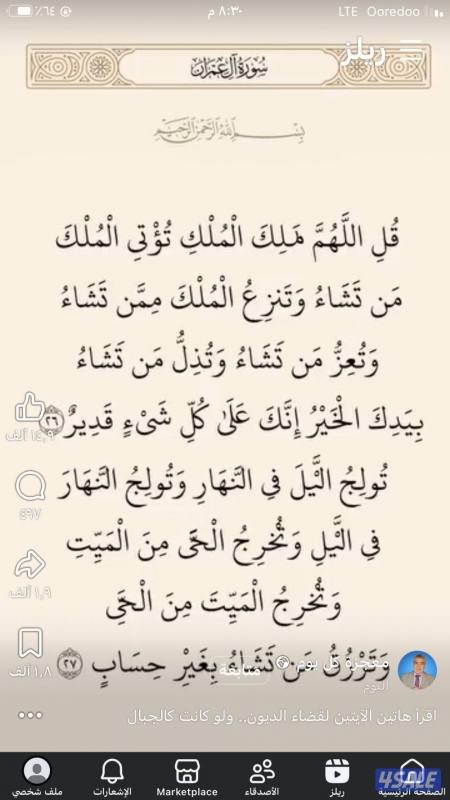 ٨:٣٠ م
LTE Ooredoo
٪٦٤
ريلز
سُورَةُ آلِ عِمْرَان
بِسْمِ اللَّهِ الرَّحْمَٰنِ الرَّحِيمِ
قُلِ اللَّهُمَّ مَٰلِكَ الْمُلْكِ تُؤْتِى الْمُلْكَ
مَن تَشَاءُ وَتَنزِعُ الْمُلْكَ مِمَّن تَشَاءُ
وَتُعِزُّ مَن تَشَاءُ وَتُذِلُّ مَن تَشَاءُ
بِيَدِكَ الْخَيْرُ إِنَّكَ عَلَىٰ كُلِّ شَىْءٍ قَدِيرٌ ٢٦
تُولِجُ الَّيْلَ فِي النَّهَارِ وَتُولِجُ النَّهَارَ
فِي الَّيْلِ وَتُخْرِجُ الْحَىَّ مِنَ الْمَيِّتِ
وَتُخْرِجُ الْمَيِّتَ مِنَ الْحَىِّ
وَتَرْزُقُ مَن تَشَاءُ بِغَيْرِ حِسَابٍ ٢٧
١٤,٩ ألف
٤٩٧
١,٩ ألف
١,٨ ألف
معجزة كل يوم
متابعة
اليوم
اقرأ هاتين الآيتين لقضاء الديون.. ولو كانت كالجبال
الصفحة الرئيسية
ريلز
الأصدقاء
Marketplace
الإشعارات
ملف شخصي
4SALE